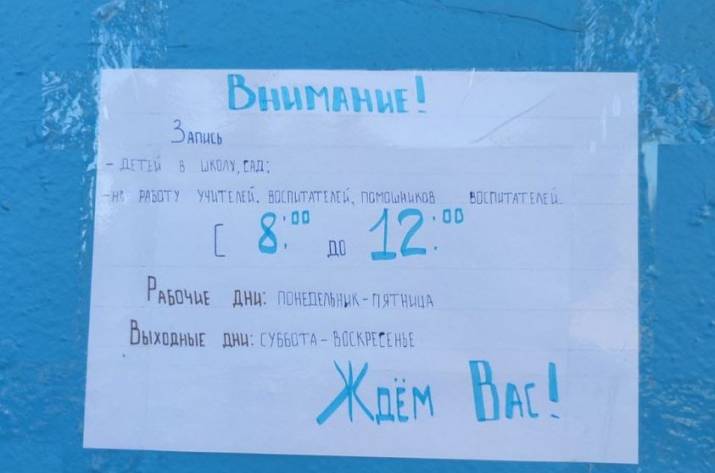 Внимание!
Запись
- детей в школу, сад;
- на работу учителей, воспитателей, помошников воспитателей.
с 8:00 до 12:00
Рабочие дни: понедельник - пятница
Выходные дни: суббота - воскресенье
Ждём Вас!